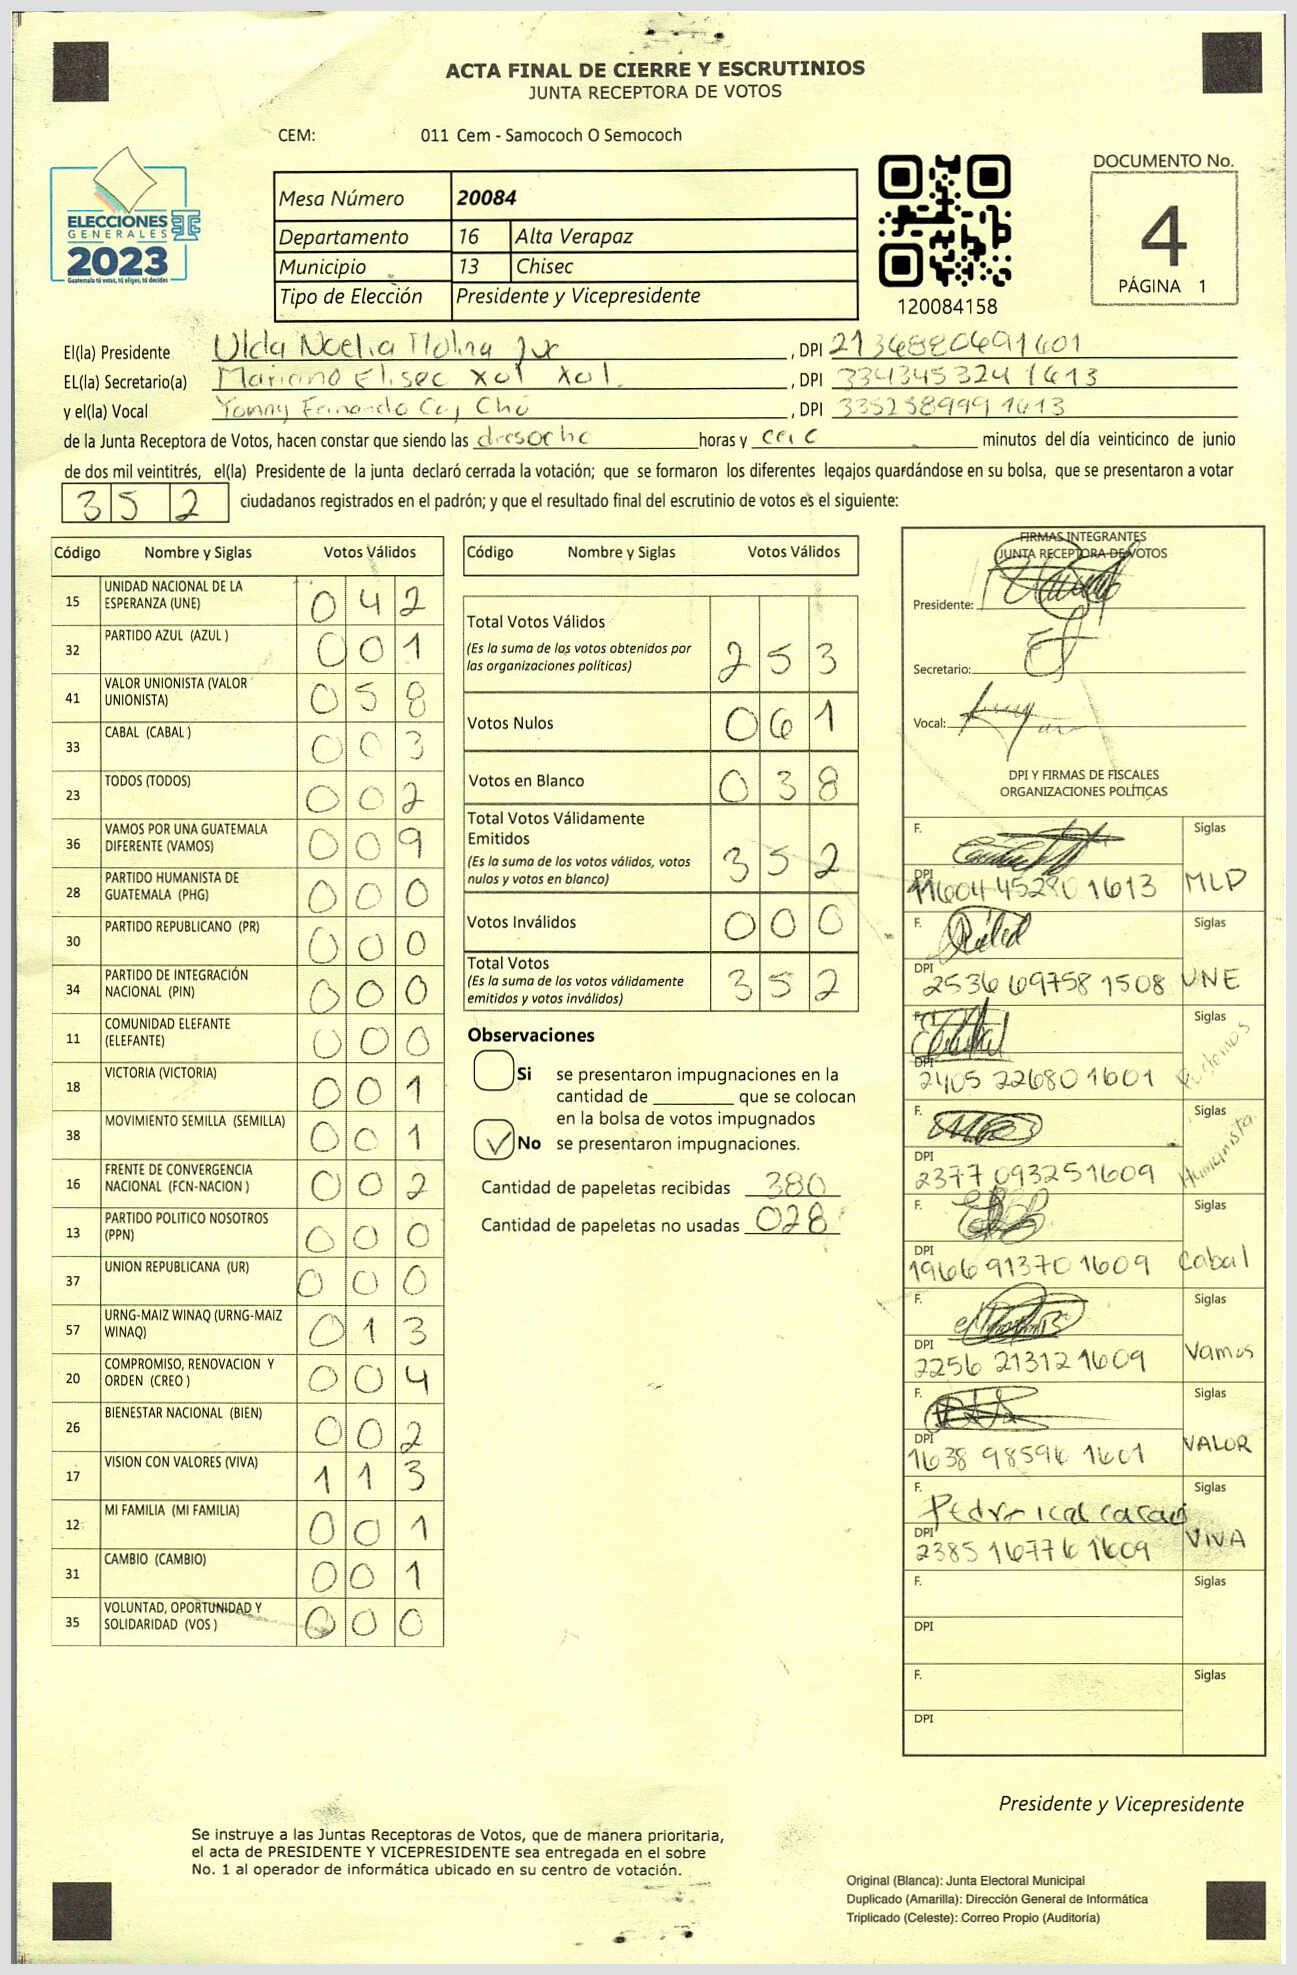 ACTA FINAL DE CIERRE Y ESCRUTINIOS
JUNTA RECEPTORA DE VOTOS
CEM: 011 Cem - Samococh O Semococh
ELECCIONES
GENERALES
2023
Guatemala tú votas, tú eliges, tú decides
Mesa Número 20084
Departamento 16 Alta Verapaz
Municipio 13 Chisec
Tipo de Elección Presidente y Vicepresidente
120084158
DOCUMENTO No.
4
PÁGINA 1
El(la) Presidente Ulda Noelia Molina , DPI 2134880691601
EL(la) Secretario(a) Mariano Elisec Xol Xol. , DPI 3343453241613
y el(la) Vocal Yonny Fernando Caj Chó , DPI 3352589991613
de la Junta Receptora de Votos, hacen constar que siendo las horas y minutos del día veinticinco de junio
de dos mil veintitrés, el(la) Presidente de la junta declaró cerrada la votación; que se formaron los diferentes legajos guardándose en su bolsa, que se presentaron a votar
352 ciudadanos registrados en el padrón; y que el resultado final del escrutinio de votos es el siguiente:
Código Nombre y Siglas Votos Válidos
15 UNIDAD NACIONAL DE LA ESPERANZA (UNE) 042
32 PARTIDO AZUL (AZUL ) 001
41 VALOR UNIONISTA (VALOR UNIONISTA) 058
33 CABAL (CABAL ) 003
23 TODOS (TODOS) 002
36 VAMOS POR UNA GUATEMALA DIFERENTE (VAMOS) 009
28 PARTIDO HUMANISTA DE GUATEMALA (PHG) 000
30 PARTIDO REPUBLICANO (PR) 000
34 PARTIDO DE INTEGRACIÓN NACIONAL (PIN) 000
11 COMUNIDAD ELEFANTE (ELEFANTE) 000
18 VICTORIA (VICTORIA) 001
38 MOVIMIENTO SEMILLA (SEMILLA) 001
16 FRENTE DE CONVERGENCIA NACIONAL (FCN-NACION ) 002
13 PARTIDO POLITICO NOSOTROS (PPN) 000
37 UNION REPUBLICANA (UR) 000
57 URNG-MAIZ WINAQ (URNG-MAIZ WINAQ) 013
20 COMPROMISO, RENOVACION Y ORDEN (CREO ) 004
26 BIENESTAR NACIONAL (BIEN) 002
17 VISION CON VALORES (VIVA) 113
12 MI FAMILIA (MI FAMILIA) 001
31 CAMBIO (CAMBIO) 001
35 VOLUNTAD, OPORTUNIDAD Y SOLIDARIDAD (VOS ) 000
Código Nombre y Siglas Votos Válidos
Total Votos Válidos
(Es la suma de los votos obtenidos por las organizaciones políticas) 253
Votos Nulos 061
Votos en Blanco 038
Total Votos Válidamente Emitidos
(Es la suma de los votos válidos, votos nulos y votos en blanco) 352
Votos Inválidos 000
Total Votos
(Es la suma de los votos válidamente emitidos y votos inválidos) 352
Observaciones
Si se presentaron impugnaciones en la
cantidad de ________ que se colocan
en la bolsa de votos impugnados
No se presentaron impugnaciones.
Cantidad de papeletas recibidas 380
Cantidad de papeletas no usadas 028
FIRMAS INTEGRANTES
JUNTA RECEPTORA DE VOTOS
Presidente:
Secretario:
Vocal:
DPI Y FIRMAS DE FISCALES
ORGANIZACIONES POLÍTICAS
F. Siglas
DPI 11604 45280 1613 MLP
F. Siglas
DPI 2536 69758 1508 UNE
F. Siglas
DPI 2405 22680 1601
F. Siglas
DPI 2377 09325 1609 Humanista
F. Siglas
DPI 1966 91370 1609 Cabal
F. Siglas
DPI 2256 21312 1609 Vamos
F. Siglas
DPI 1638 98596 1601 VALOR
F. Siglas
DPI 2385 16776 1609 VIVA
F. Siglas
DPI
F. Siglas
DPI
Presidente y Vicepresidente
Se instruye a las Juntas Receptoras de Votos, que de manera prioritaria,
el acta de PRESIDENTE Y VICEPRESIDENTE sea entregada en el sobre
No. 1 al operador de informática ubicado en su centro de votación.
Original (Blanca): Junta Electoral Municipal
Duplicado (Amarilla): Dirección General de Informática
Triplicado (Celeste): Correo Propio (Auditoría)